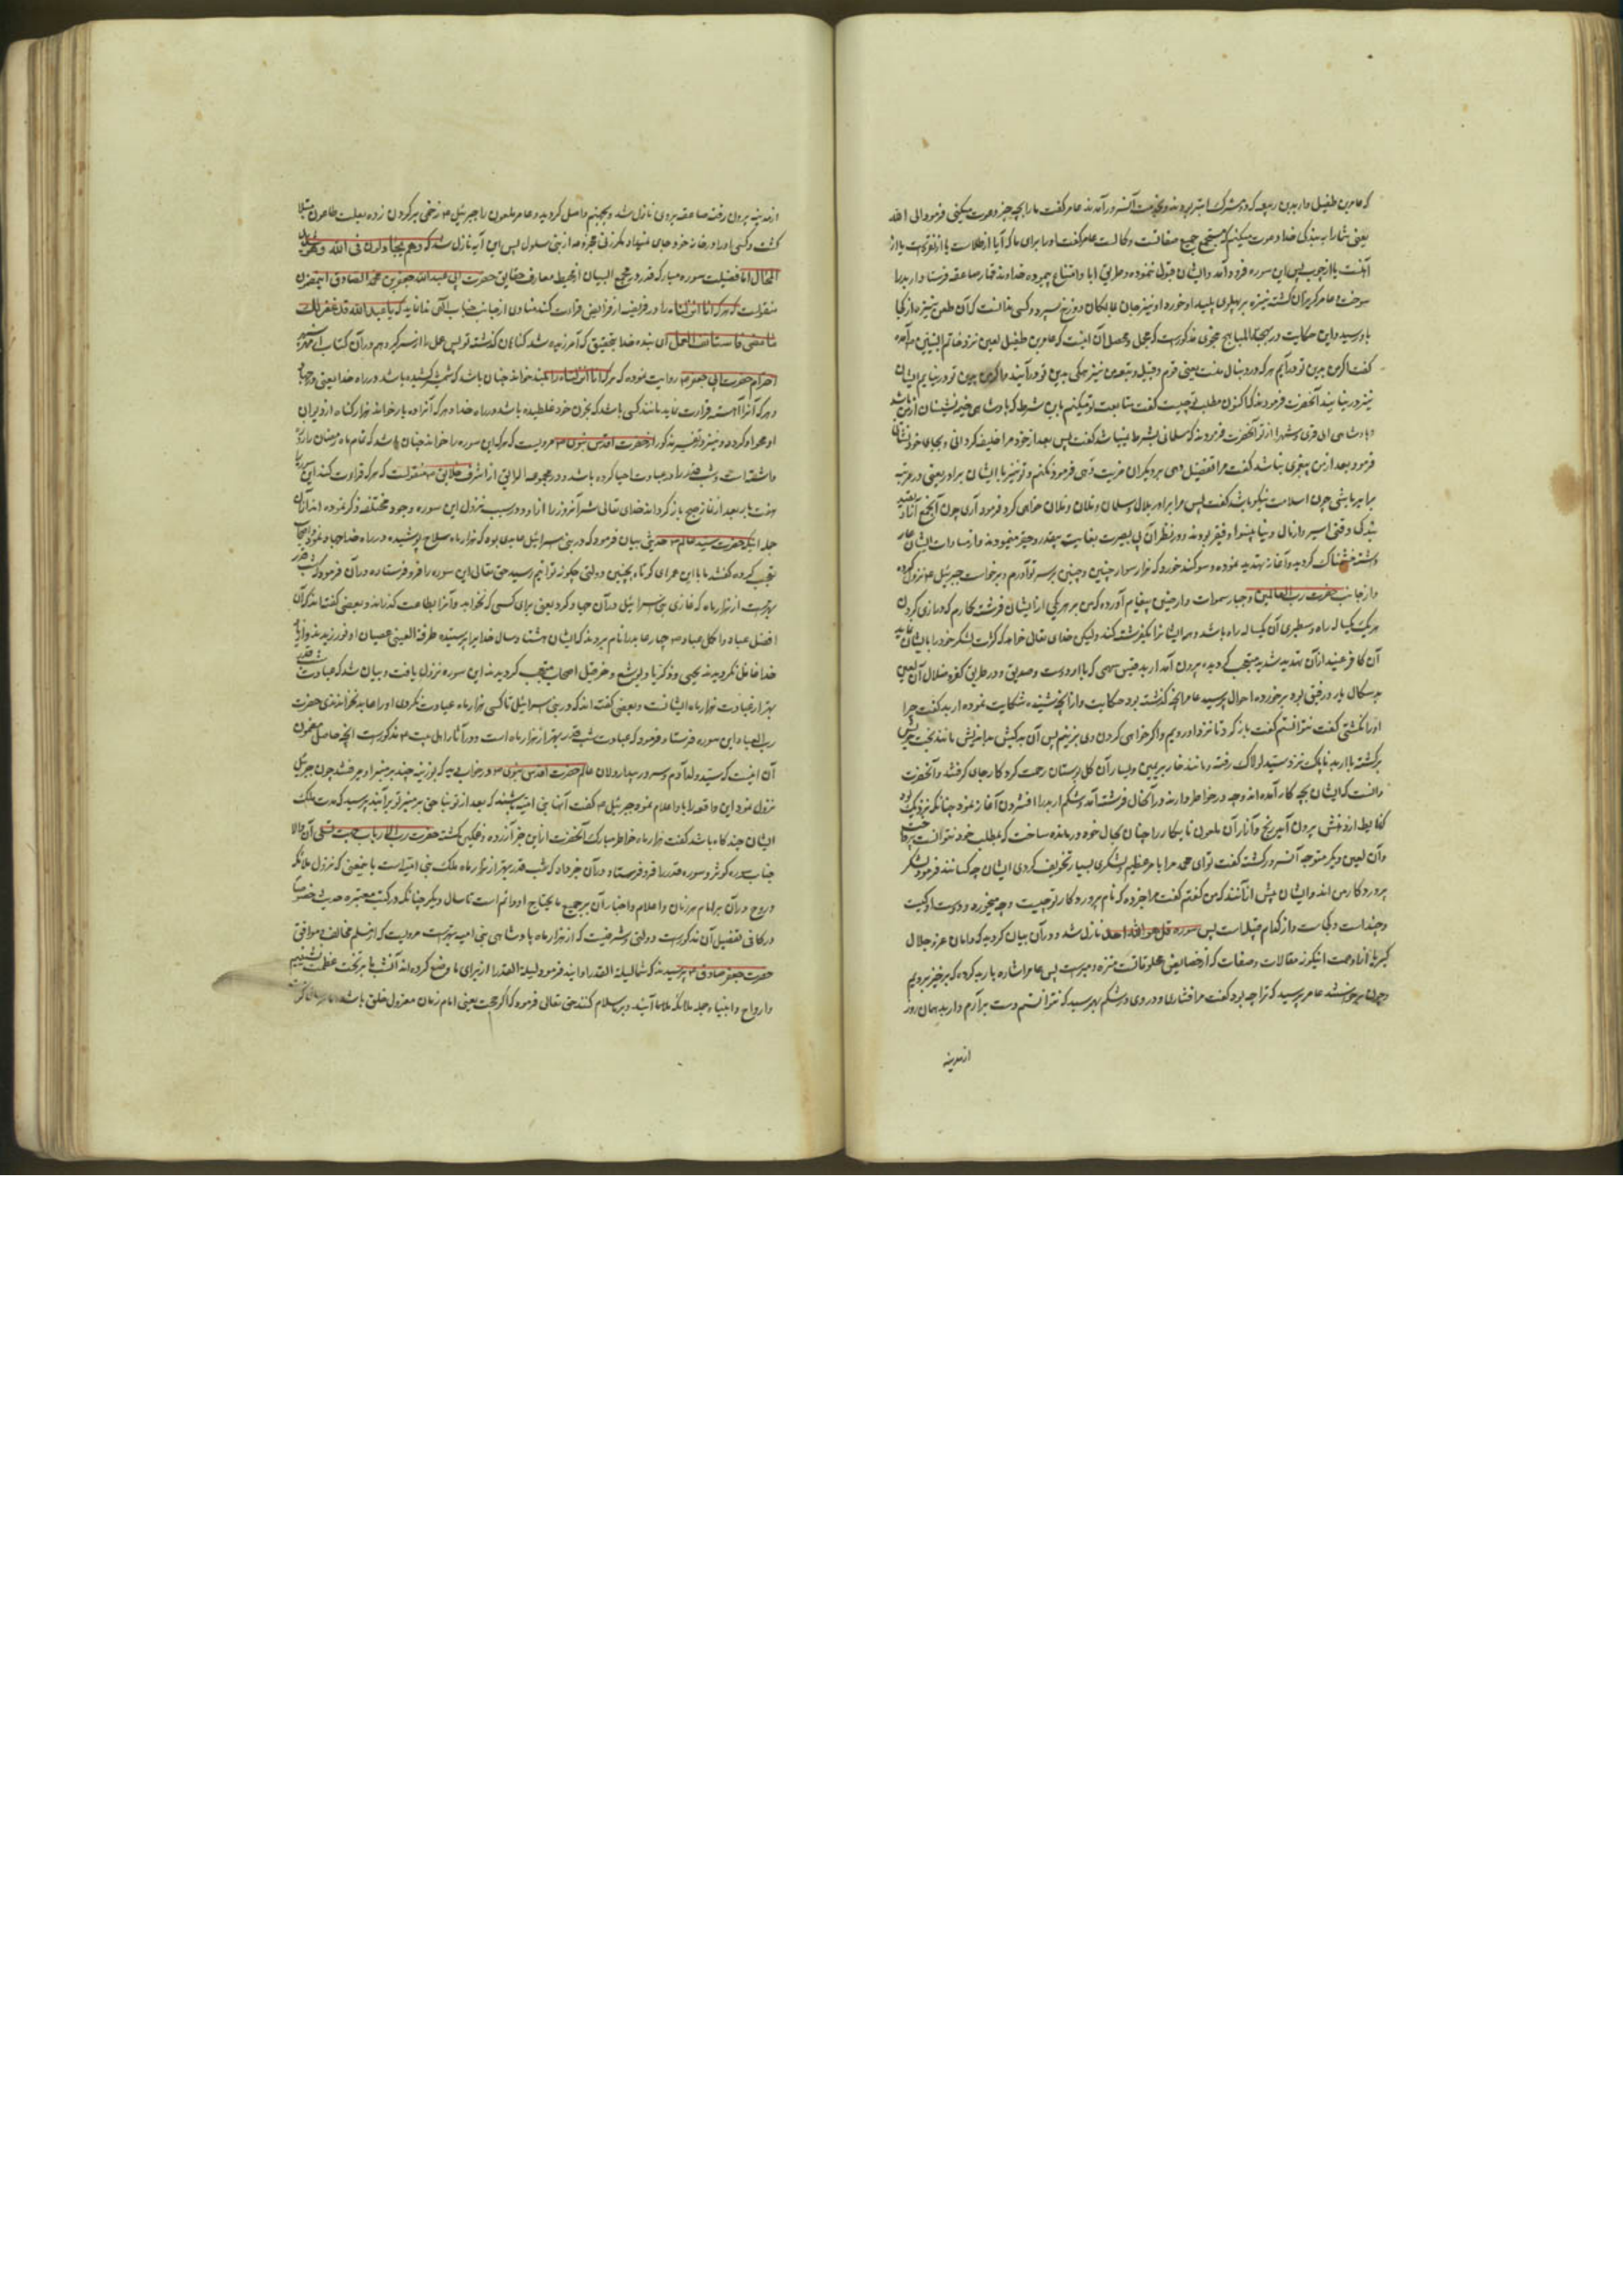 که عامر بن طفیل و اربد بن ربیعه که دو مشرک ابتر بودند و بخدمت آنسرور آمدند عامر گفت ما را بچه چیز دعوت میکنی فرمود الی الله
یعنی شما را به بندگی خدا دعوت میکنم که مستجمع جمیع صفات و کمالات است عامر گفت او را برای ما که آیا از طلاست یا از نقره است یا از
آهنست یا از چوب پس این سوره فرود آمد و ایشان قبول ننموده و طریق ابا و امتناع پیموده خداوند قهار صاعقه فرستاد و اربد را
سوخت و عامر گریزان گشته نیزه بر پهلوی پلید او خورد او نیز جان بمالکان دوزخ سپرد و کسی ندانست که آن طعن نیزه از کجا
باو رسید و این حکایت در بهجة المباهج بنحوی مذکورست که مجمل و محصل آن اینست که عامر بن طفیل لعین نزد خاتم النبیین آمده
گفت اگر من بدین تو درآیم هر که در دنبال منست یعنی قوم و قبیله و تبعه من نیز همگی بدین تو درآیند و اگر من بدین تو در نیایم ایشان
نیز در نیایند آنحضرت فرمودند که اکنون مطلب تو چیست گفت متابعت تو میکنم باین شرط که پادشاهی خیمه نشینان از من باشد
و پادشاهی اهل قری و شهرها از تو آنحضرت فرمودند که مسلمانی بشرط نمیباشد گفت پس بعد از خود مرا خلیفه گردانی و بجای خود نشانی
فرمود بعد از من پیغمبری نباشد گفت مرا تفضیل دهی بر دیگران عزیت دهی فرمود نکنم و تو نیز با ایشان برادر یعنی در مرتبه
برابر باشی چون اسلامت نیکو باشد گفت پس مرا برادر بلال و سلمان و فلان و فلان خواهی کرد فرمود آری چون آنجمع
بندگی وقتی اسیر و از مال دنیا بینوا و فقیر بودند و در نظر آن بی بصیرت بغایت بیقدر و حقیر مینمودند و از مساوات ایشان عار
داشته خشمناک گردید و آغاز تهدید نموده و سوگند خورد که هزار سوار چنین و چنین بر سر تو آورم و برخواست جبرئیل ع نزول
و از جانب حضرت رب العالمین و جبار سموات و ارضین پیغام آورده که من بر هر یکی از ایشان فرشته بگمارم که درازی گردن
هر یک یکساله راه و سطبری آن یکساله راه باشد و همه ایشانرا یکفرشته کند ولیکن خدای تعالی خواهد که کثرت لشکر خود را بایشان نماید
آن کافر عنید از آن تهدید شدید متعجب گردیده بیرون آمد اربد بن قیس سهمی که با او دوست و صدیق و در طریق کفر و ضلال آن لعین
بدسگال یار و رفیق بود برخورده احوال پرسید عامر آنچه گذشته بود حکایت و از آنچه شنیده شکایت نموده اربد گفت چرا
او را نکشتی گفت نتوانستم گفت باز گرد تا نزد او رویم و اگر خواهی گردن وی بزنیم پس آن بدکیش بداندیش مانند بخت
برگشته با اربد ناپاک نزد سید لولاک رفته و مانند خار بر یمین و یسار آن گل بوستان رحمت کردگار جای گرفتند و آنحضرت
دانست که ایشان بچه کار آمده اند و چه در خواطر دارند در آنحال فرشته آمد و شکم اربد را افشردن آغاز نمود چنانکه نزدیک بود
که غایط از دهنش بیرون آید رنج و آزار آن ملعون نابکار را چنان بحال خود درمانده ساخت که بمطلب خود نتوانست پرداخت
و آن لعین دیگر متوجه آنسرور گشته گفت تو ای محمد مرا بامر عظیم و لشکری بسیار تخویف کردی ایشان چه کسانند فرمود لشکر
پروردگار من اند و ایشان بیش از آنند که من گفتم گفت مرا خبر ده که نام پروردگار تو چیست و چه میخورد و دوست او کیست
و چند است و بکجاست و از کدام قبیله است پس سوره قل هو الله احد نازل شد و در آن بیان گردید که دامان عز و جلال
کبریا و احدیت از اینگونه مقالات و صفات که از خصایص مخلوقاتست منزه و مبراست پس عامر اشاره باربد کرده که برخیز برویم
و چون برخواستند عامر پرسید که ترا چه بود گفت مرا فشاری و دردی در شکم بهم رسید که نتوانستم دست برآرم و اربد همان روز
از مدینه
از مدینه بیرون رفت صاعقه بر وی نازل شد و بجهنم واصل گردید و عامر ملعون را جبرئیل ع زخمی بر گردن زده بعلت طاعون مبتلا
گشت و کسی او را در خانه خود جای نمیداد مگر زنی عجوزه از بنی سلول پس این آیه نازل شد که و هم یجادلون فی الله و هو شدید
المحال اما فضیلت سوره مبارکه قدر در مجمع البیان از محیط معارف حقایق حضرت ابی عبدالله جعفر بن محمد الصادق
منقولست که هر که انا انزلناه را در فریضه از فرایض قرائت کند منادی از جانب جناب الهی ندا نماید که یا عبدالله قد غفر لک
ما مضی فاستانف العمل ای بنده خدا بتحقیق که آمرزیده شد گناهان گذشته تو پس عمل را از سر گیر و هم در آن کتاب از
حضرت ابی جعفر ع روایت نموده که هر که انا انزلناه را بلند خواند چنان باشد که شمشیر کشیده باشد در راه خدا یعنی در جهاد
و هر که آنرا آهسته قرائت نماید مانند کسی باشد که بخون خود غلطیده باشد در راه خدا و هر که آنرا ده بار خواند هزار گناه از دیوان
او محو گردد و نیز در تفسیر مذکور از حضرت اقدس نبوی ص مرویست که هر که این سوره را خواند چنان باشد که تمام ماه رمضان را روزه
داشته است و شب قدر را در عبادت احیا کرده باشد و در مجموعه الرائق از اشرف خلایق ص منقولست که هر که قرائت کند این سوره را
هفت بار بعد از نماز صبح باز گرداند خدای تعالی شر آنروز را از او و در سبب نزول این سوره وجوه مختلفه ذکر نموده اند از آن
جمله اینکه حضرت سید عالم ص حدیثی بیان فرمود که در بنی اسرائیل عابدی بود که هزار ماه سلاح پوشیده در راه خدا جهاد نموده اصحاب
تعجب کرده گفتند ما با این عمرهای کوتاه بچنین دولتی چگونه توانیم رسید حق تعالی این سوره را فرو فرستاده و در آن فرمود که شب قدر
بهتر است از هزار ماه که غازی بنی اسرائیل در آن جهاد کرد یعنی برای کسی که نخوابد و آنرا بطاعت گذراند و بعضی گفته اند که آن
افضل عباد و اکمل عباد ص چهار عابد را نام بردند که ایشان هشتاد سال خدا را پرستیده طرفة العینی عصیان او نورزیدند و از یاد
خدا غافل نگردیدند یحیی و زکریا و یوشع و حزقیل اصحاب متعجب گردیدند این سوره نزول یافت و بیان شد که عبادت شب قدر
بهتر از عبادت هزار ماه ایشانست و بعضی گفته اند که در بنی اسرائیل تا کسی هزار ماه عبادت نکردی او را عابد نخواندندی حضرت
رب العباد این سوره فرستاد و فرمود که عبادت شب قدر بهتر از هزار ماه است و در آثار اهل بیت ع مذکورست آنچه حاصل مضمون
آن اینست که سید ولد آدم و سرور عالم حضرت اقدس نبوی ص در خواب دید که بوزینه چند بر منبر او میرفتند چون جبرئیل
نزول نمود این واقعه را با او اعلام نمود جبرئیل ع گفت آنها بنی امیه باشند که بعد از تو بناحق بر منبر تو برآیند پرسید که مدت ملک
ایشان چند گاه باشد گفت هزار ماه خواطر مبارک آنحضرت از این خبر آزرده و غمگین گشته حضرت رب الارباب جهت تسلی آن والا
جناب سوره کوثر و سوره قدر را فرو فرستاد و در آن خبر داد که شب قدر بهتر از هزار ماه ملک بنی امیه است یا خیفی که نزول ملائکه
و روح در آن بر امام هر زمان و اعلام و اخبار آن بر جمیع ما یحتاج او دایم است تا سال دیگر چنانکه در کتب معتبره حدیث خصوصا
در کافی تفصیل آن مذکورست و دولتی و شرفیست که از هزار ماه پادشاهی بنی امیه بهتر است مرویست که از مسلم مخالف و موافق
حضرت جعفر صادق ع پرسیدند که شما لیلة القدر را دانید فرمود لیلة القدر را از برای ما وضع کرده اند آنشب ما بر تخت عظمت نشینیم
و ارواح و انبیا و جمله ملائکه ملأ اعلا آیند و بر ما سلام کنند حق تعالی فرمود که اگر حجت یعنی امام زمان معزول خلق باشد